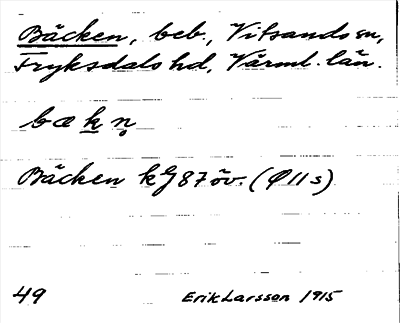 Bäcken, beb., Vitsands sn,
Fryksdals hd, Värml. län.
bæk̲n̥
Bäcken kg 87 öv. (Ø 11 s)
49 Erik Larsson 1915